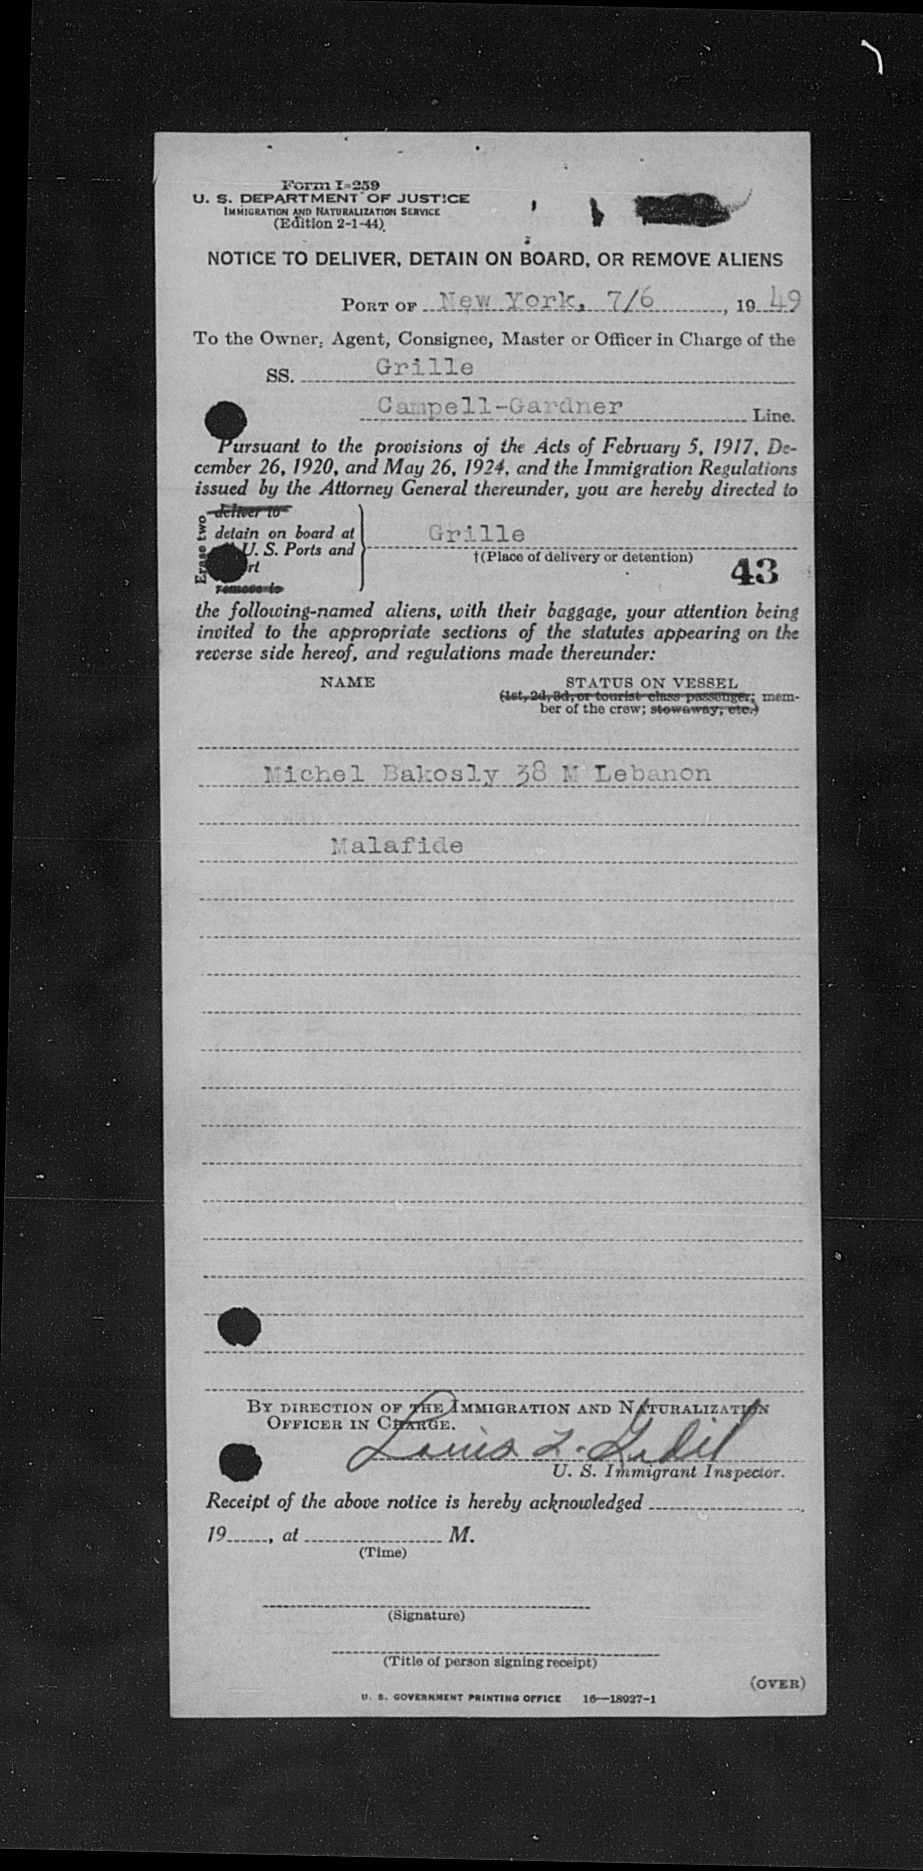 Form I-259
U. S. DEPARTMENT OF JUSTICE
IMMIGRATION AND NATURALIZATION SERVICE
(Edition 2-1-44)
NOTICE TO DELIVER, DETAIN ON BOARD, OR REMOVE ALIENS
PORT OF New York, 7/6, 1949
To the Owner, Agent, Consignee, Master or Officer in Charge of the
SS. Grille
Campell-Gardner Line.
Pursuant to the provisions of the Acts of February 5, 1917, De-
cember 26, 1920, and May 26, 1924, and the Immigration Regulations
issued by the Attorney General thereunder, you are hereby directed to
Erase two
deliver to
detain on board at
U. S. Ports and
remove to
Grille
†(Place of delivery or detention)
43
the following-named aliens, with their baggage, your attention being
invited to the appropriate sections of the statutes appearing on the
reverse side hereof, and regulations made thereunder:
NAME STATUS ON VESSEL
(1st, 2d, 3d, or tourist class passenger; mem-
ber of the crew; stowaway, etc.)
Michel Bakosly 38 M Lebanon
Malafide
BY DIRECTION OF THE IMMIGRATION AND NATURALIZATION
OFFICER IN CHARGE.
Louis
U. S. Immigrant Inspector.
Receipt of the above notice is hereby acknowledged
19, at M.
(Time)
(Signature)
(Title of person signing receipt)
(OVER)
U. S. GOVERNMENT PRINTING OFFICE 16—18927-1